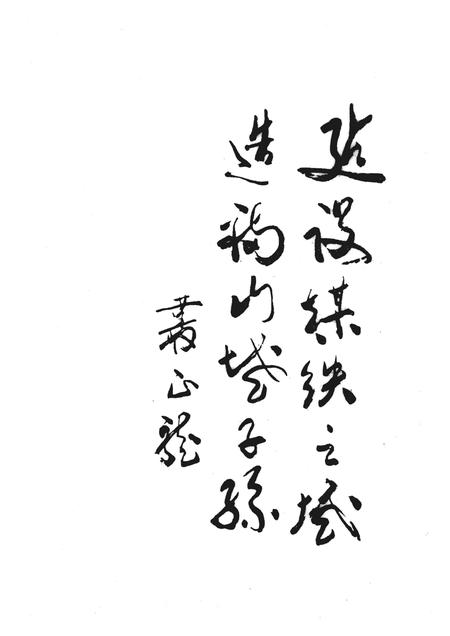 建设煤铁之城
造福山城子孙
丛正龙